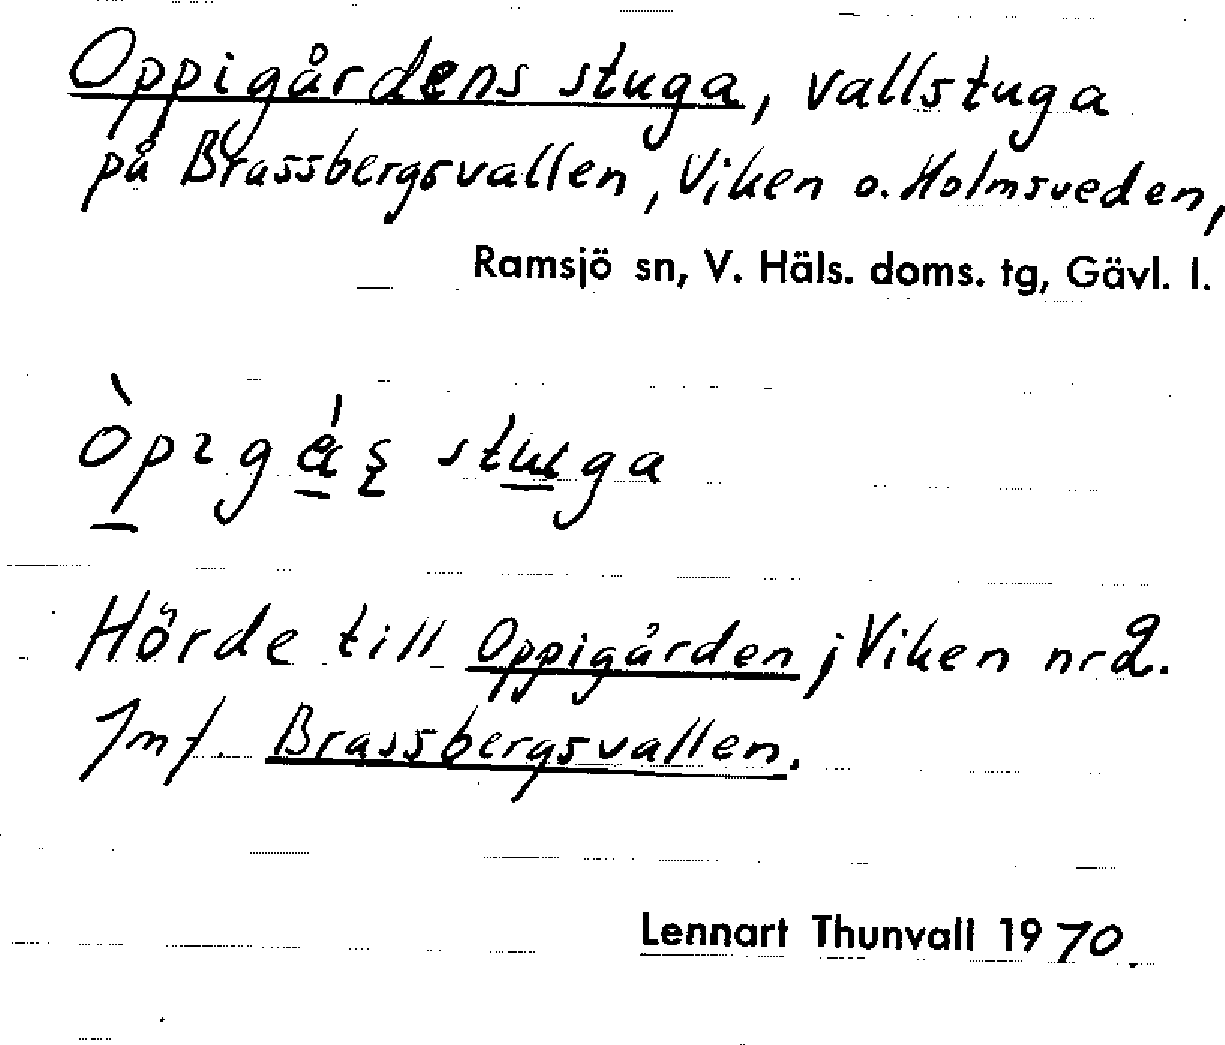 Oppigårdens stuga, vallstuga
på Brassbergsvallen, Viken o. Holmsveden,
Ramsjö sn, V. Häls. doms. tg, Gävl. l.
stuga
Hörde till Oppigården i Viken nr 2.
Jmf. Brassbergsvallen.
Lennart Thunvall 1970.